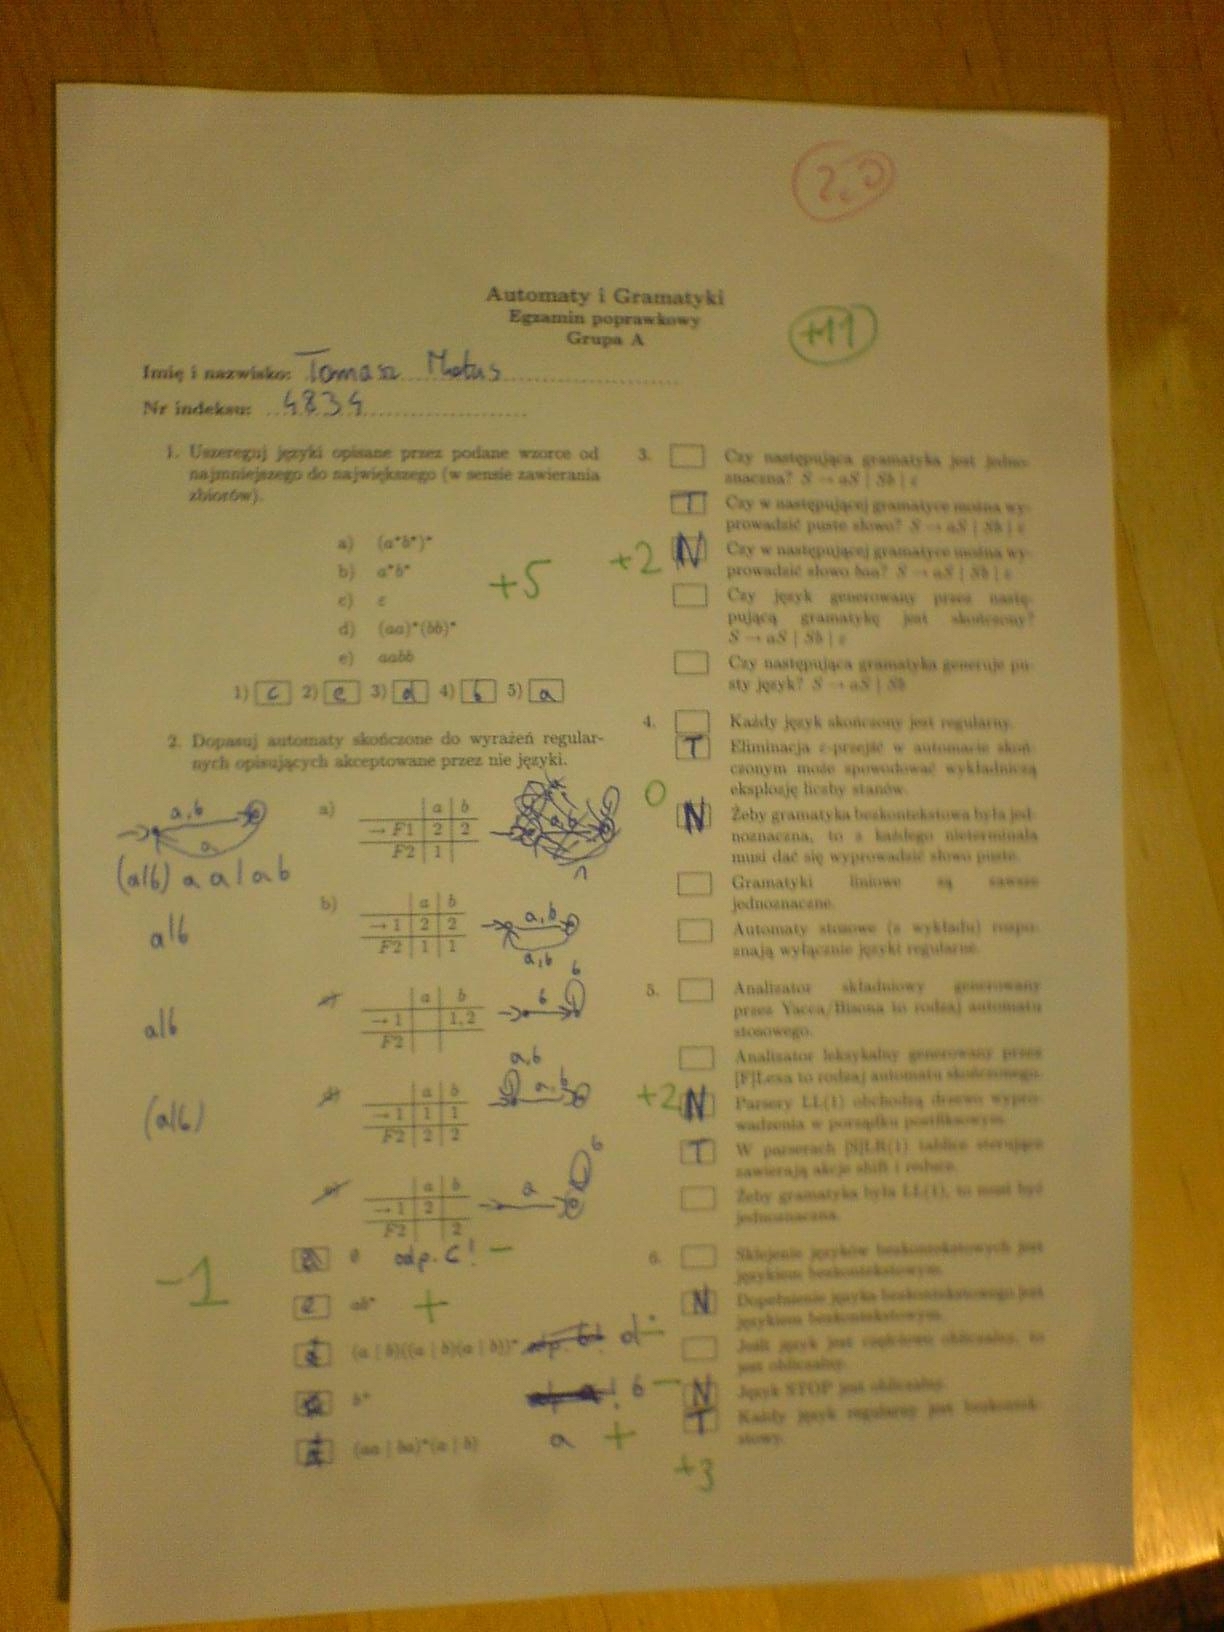 2,0
Automaty i Gramatyki
Egzamin poprawkowy
Grupa A
+11
Imię i nazwisko: Tomasz Matus
Nr indeksu: 4834
1. Uszereguj języki opisane przez podane wzorce od
najmniejszego do największego (w sensie zawierania
zbiorów).
a) (a*b*)*
b) a*b*
c) ε
d) (aa)*(bb)*
e) aabb
+5
1) c 2) e 3) d 4) b 5) a
2. Dopasuj automaty skończone do wyrażeń regular-
nych opisujących akceptowane przez nie języki.
a,b
a
(a|b) a a | a b
a|b
a|b
(a|b)
a)
a b
→ F1 2 2
F2 1
b)
a b
→ 1 2 2
F2 1 1
a,b
a,b
c)
a b
→ 1 1,2
F2
b
b
d)
a b
→ 1 1 1
F2 2 2
a,b
a,b
e)
a b
→ 1 2
F2 2
a
b
-1
∅ odp. C! -
e ab* +
(a | b)((a | b)(a | b))* d -
b+ b -
(aa | ba)*(a | b) a +
3. Czy następująca gramatyka jest jedno-
znaczna? S → aS | Sb | ε
T Czy w następującej gramatyce można wy-
prowadzić puste słowo? S → aS | Sb | ε
+2 N Czy w następującej gramatyce można wy-
prowadzić słowo baa? S → aS | Sb | ε
Czy język generowany przez nastę-
pującą gramatykę jest skończony?
S → aS | Sb | ε
Czy następująca gramatyka generuje pu-
sty język? S → aS | Sb
4. Każdy język skończony jest regularny.
T Eliminacja ε-przejść w automacie skoń-
czonym może spowodować wykładniczą
eksplozję liczby stanów.
0 N Żeby gramatyka bezkontekstowa była jed-
noznaczna, to z każdego nieterminala
musi dać się wyprowadzić słowo puste.
Gramatyki liniowe są zawsze
jednoznaczne.
Automaty stosowe (z wykładu) rozpo-
znają wyłącznie języki regularne.
5. Analizator składniowy generowany
przez Yacca/Bisona to rodzaj automatu
stosowego.
Analizator leksykalny generowany przez
[F]Lexa to rodzaj automatu skończonego.
+2 N Parsery LL(1) obchodzą drzewo wypro-
wadzenia w porządku postfiksowym.
T W parserach [S]LR(1) tablice sterujące
zawierają akcje shift i reduce.
Żeby gramatyka była LL(1), to musi być
jednoznaczna.
6. Sklejenie języków bezkontekstowych jest
językiem bezkontekstowym.
N Dopełnienie języka bezkontekstowego jest
językiem bezkontekstowym.
Jeśli język jest częściowo obliczalny, to
jest obliczalny.
N Język STOP jest obliczalny.
T Każdy język regularny jest bezkontek-
stowy.
+3